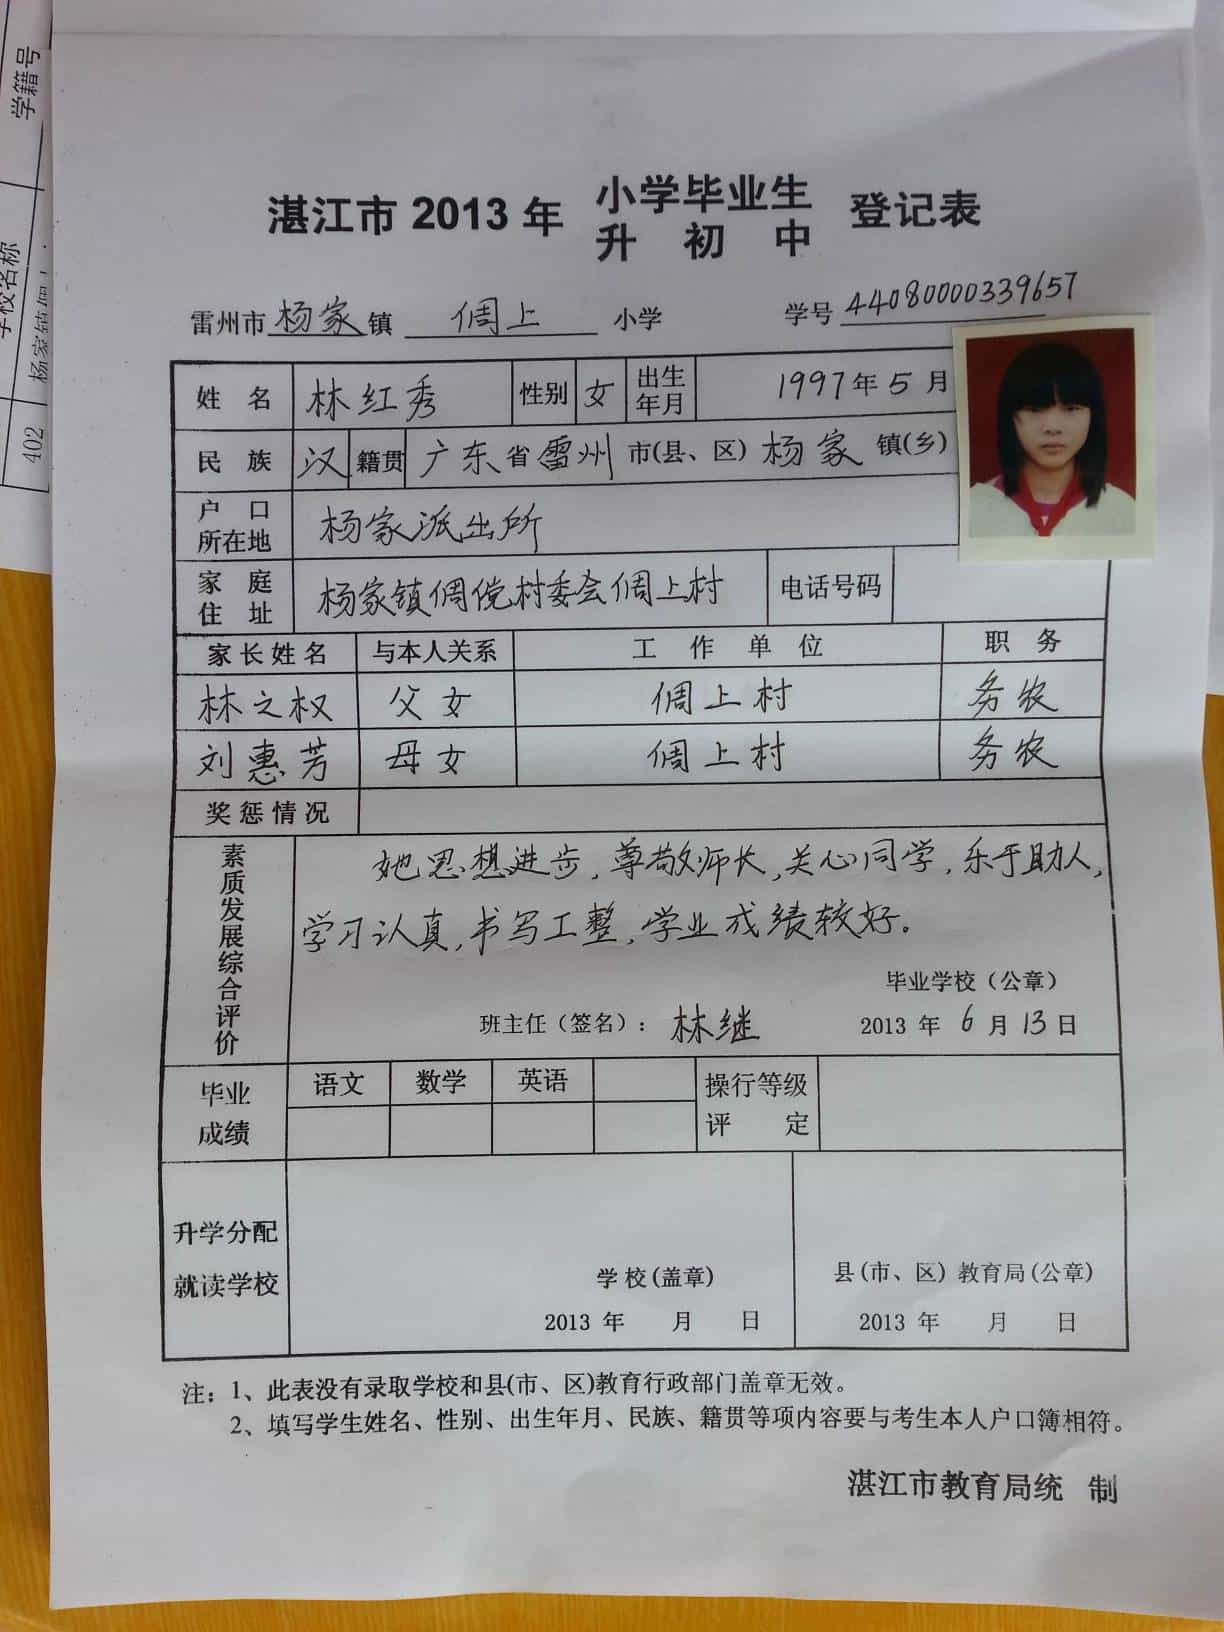 学籍号
学校名称
402
湛江市 2013 年 小学毕业生 升初中 登记表
雷州市杨家镇 倜上 小学 学号 44080000339657
姓名 林红秀 性别 女 出生年月 1997年5月
民族 汉 籍贯 广东省雷州市(县、区)杨家镇(乡)
户口所在地 杨家派出所
家庭住址 杨家镇倜傥村委会倜上村 电话号码
家长姓名 与本人关系 工作单位 职务
林之权 父女 倜上村 务农
刘惠芳 母女 倜上村 务农
奖惩情况
素质发展综合评价
她思想进步,尊敬师长,关心同学,乐于助人,
学习认真,书写工整,学业成绩较好。
毕业学校(公章)
班主任(签名): 林继 2013 年 6 月 13 日
毕业成绩 语文 数学 英语 操行等级评定
升学分配
就读学校
学校(盖章) 县(市、区)教育局(公章)
2013 年 月 日 2013 年 月 日
注: 1、此表没有录取学校和县(市、区)教育行政部门盖章无效。
2、填写学生姓名、性别、出生年月、民族、籍贯等项内容要与考生本人户口簿相符。
湛江市教育局统 制